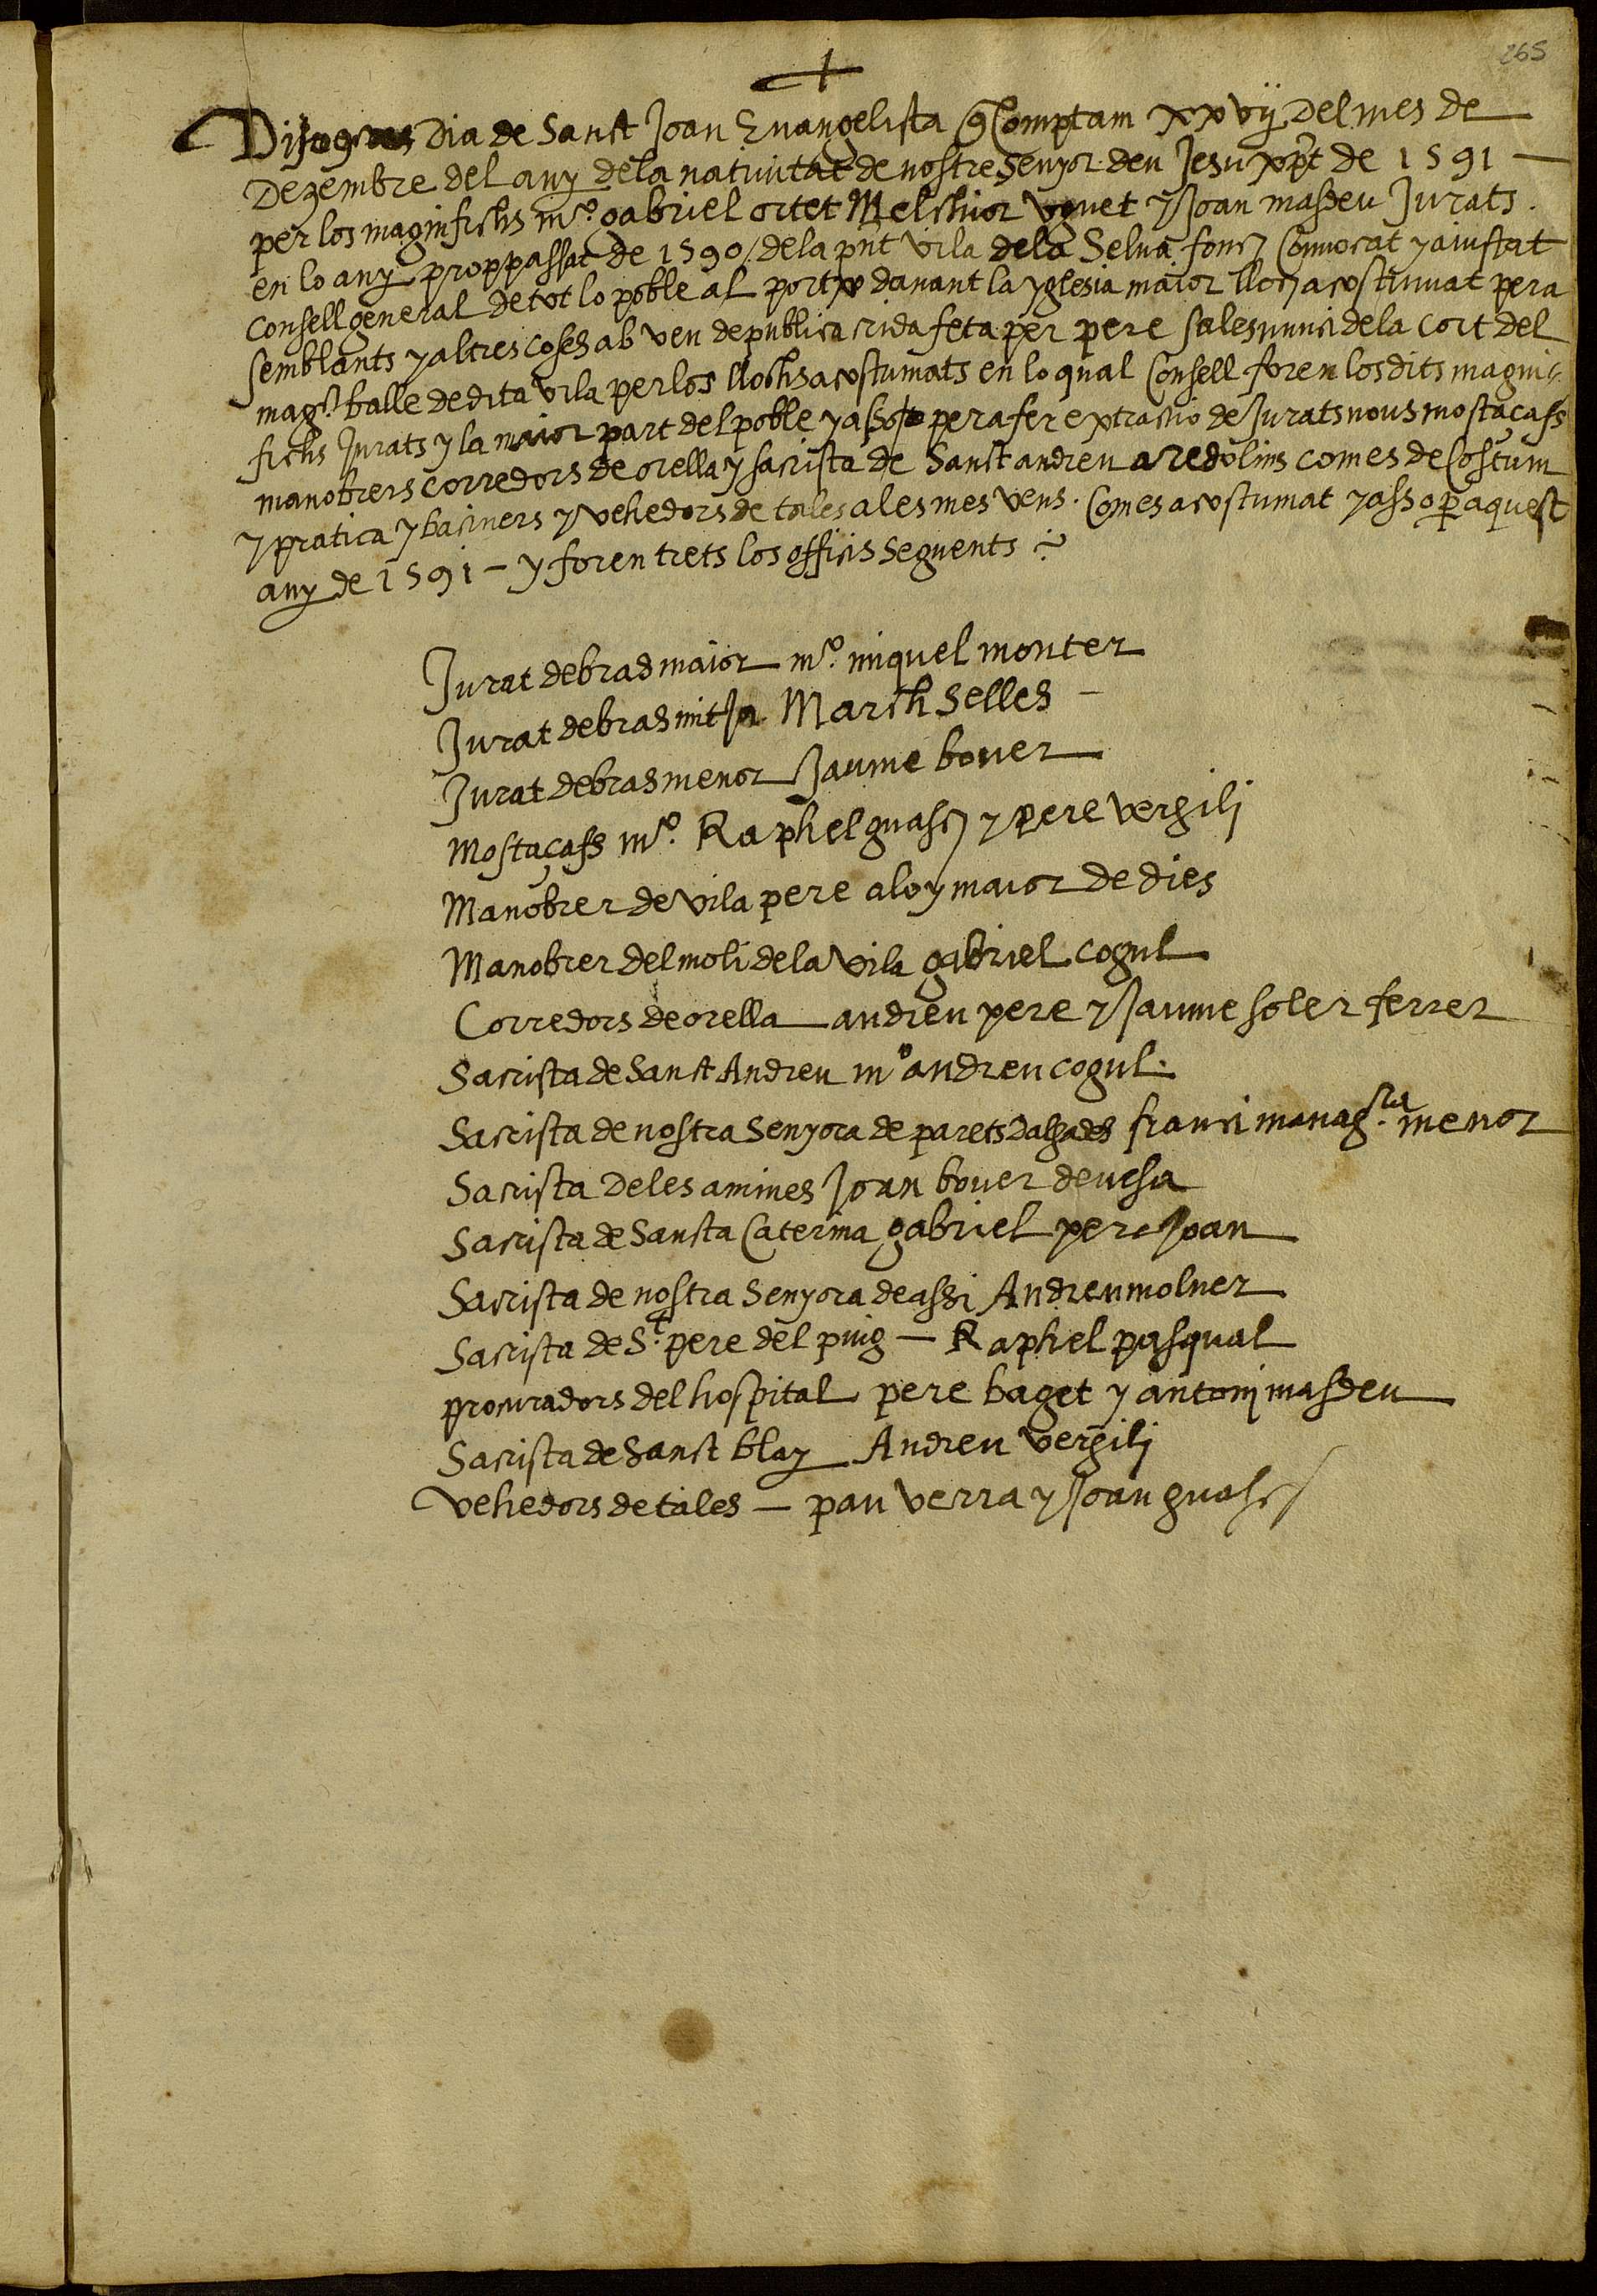 265
Dijous Dia de Sanct Joan Evangelista q Comptam xxvij Del mes de
Dezembre del any de la nativitat de nostre senyor deu Jesu xpt de 1591
per los maginfichs mº. gabriel ortet Melchior vguet y Joan masdeu Jurats.
en lo any proppassat de 1590 / de la pnt vila dela Selva fonc Convocat y aiustat
consell general de tot lo poble al portxo davant la yglesia maior lloc acostumat pera
semblants y altres coses ab veu de publica crida feta per pere sales nunci dela cort del
magch. balle de dita vila per los llochs acostumats en lo qual Consell foren los dits magni
fichs Jurats y la maior part del poble y asso pera fer extractio de Jurats nous mostaçafs
manobrers corredors de orella y sacrista de Sanct andreu a redolins com es de Costum
y pratica y baciners y vehedors de tales a les mes veus. Com es acostumat y asso per aquest
any de 1591 – y foren trets los officis seguents
Jurat de bras maior mº. miquel monter
Jurat de bras mitja March Selles
Jurat de bras menor Jaume bover
Mostaçafs mº. Raphel guasc y pere vergili
Manobrer de vila pere aloy maior de dies
Manobrer del moli de la vila gabriel cogul
Corredors de orella andreu pere y Jaume soler ferrer
Sacrista de Sanct Andreu mº andreu cogul.
Sacrista de nostra Senyora de parets dalgades franci manag. menor
Sacrista de les amines Joan bover devesa
Sacrista de Sancta Caterina gabriel pere Joan
Sacrista de nostra Senyora de assi Andreu molner
Sacrista de St. pere del puig – Raphel pasqual
procuradors del hospital pere baget y antonj masdeu
Sacrista de Sanct blay Andreu vergilj
vehedors de tales – pau verra y Joan guasch